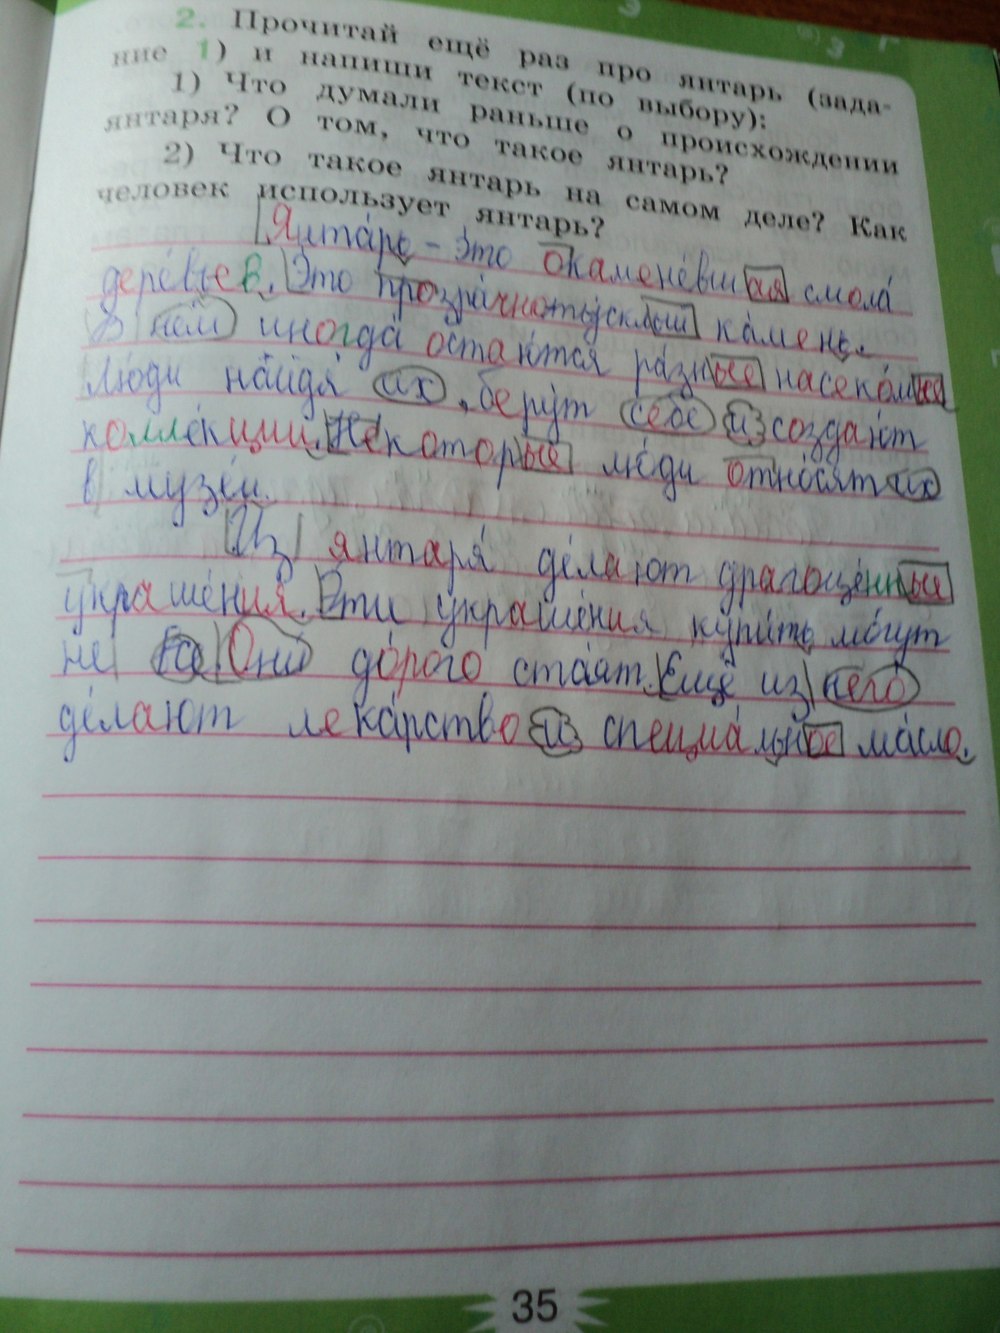 2. Прочитай ещё раз про янтарь (зада-
ние 1) и напиши текст (по выбору):
1) Что думали раньше о происхождении
янтаря? О том, что такое янтарь?
2) Что такое янтарь на самом деле? Как
человек использует янтарь?
Янта́рь - э́то окамене́вшая смола́
дере́вьев. Это прозра́чнотусклый ка́мень.
В нём иногда́ оста́ются ра́зные насеко́мые
Лю́ди найдя́ их, беру́т себе и создаю́т
колле́кции. Некоторые лю́ди относят их
в музе́и.
Из янтаря́ де́лают драгоце́нные
украше́ния. Эти украше́ния купи́ть мо́гут
не все Они до́рого стаят. Ещё из него
де́лают лека́рство и специа́льное ма́сло.
35